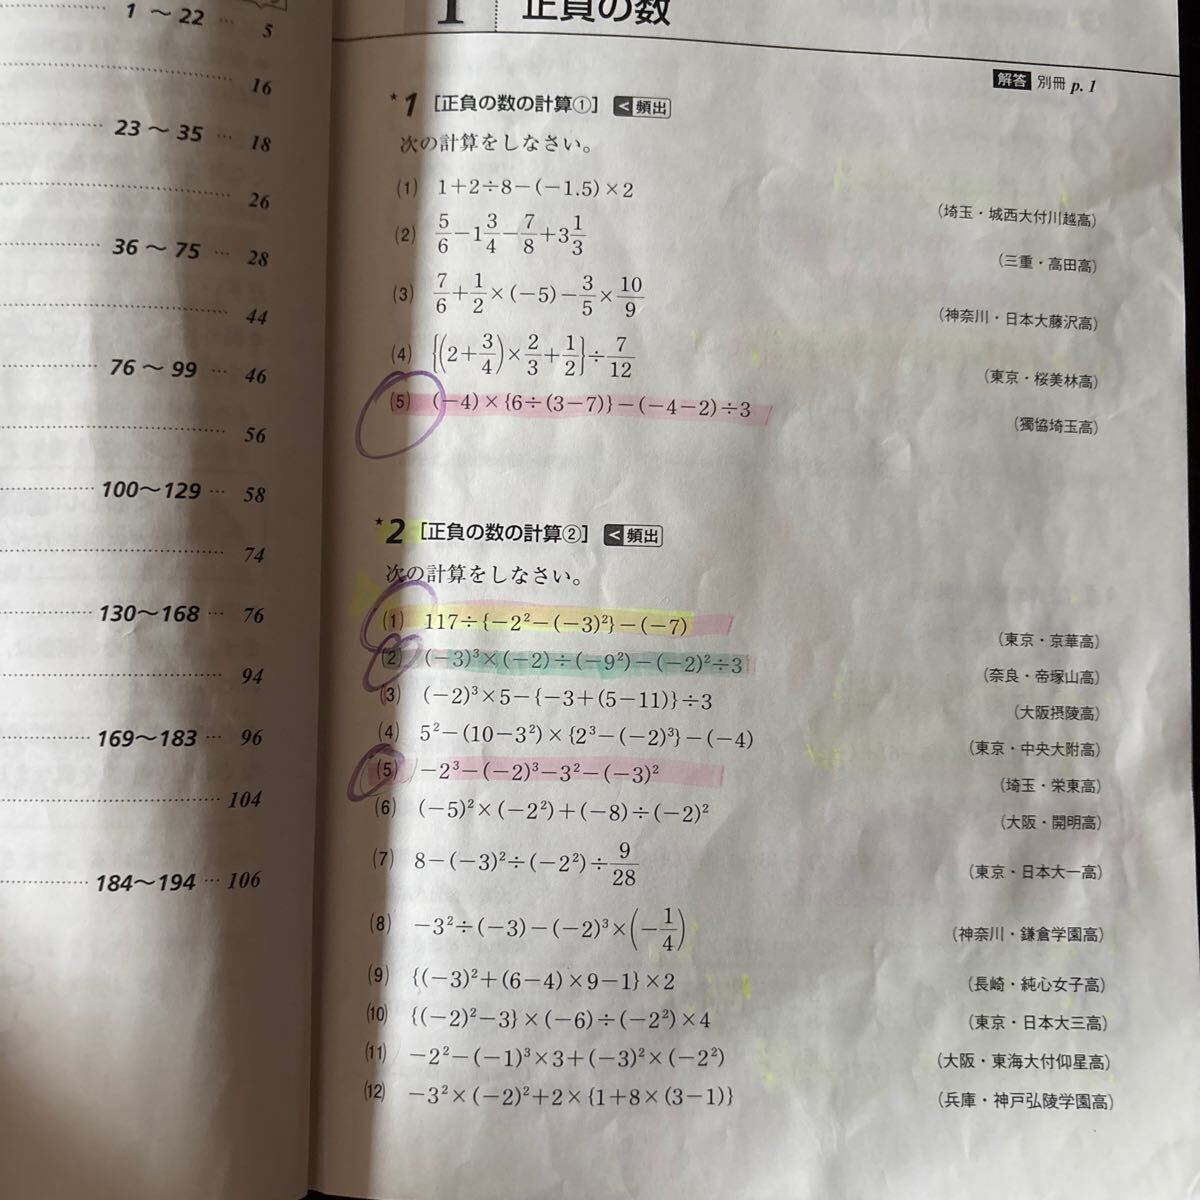 1 ～ 22 … 5
16
23 ～ 35 … 18
26
36 ～ 75 … 28
44
76 ～ 99 … 46
56
100～129 … 58
74
130～168 … 76
94
169～183 … 96
104
184～194 … 106
1 正負の数
解答 別冊 p. 1
★1 [正負の数の計算①] ＜頻出
次の計算をしなさい。
(1) 1+2÷8−(−1.5)×2 (埼玉・城西大付川越高)
(2) 5/6−1 3/4−7/8+3 1/3 (三重・高田高)
(3) 7/6+1/2×(−5)−3/5×10/9 (神奈川・日本大藤沢高)
(4) {(2+3/4)×2/3+1/2}÷7/12 (東京・桜美林高)
(5) (−4)×{6÷(3−7)}−(−4−2)÷3 (獨協埼玉高)
★2 [正負の数の計算②] ＜頻出
次の計算をしなさい。
(1) 117÷{−2²−(−3)²}−(−7) (東京・京華高)
(2) (−3)³×(−2)÷(−9²)−(−2)²÷3 (奈良・帝塚山高)
(3) (−2)³×5−{−3+(5−11)}÷3 (大阪摂陵高)
(4) 5²−(10−3²)×{2³−(−2)³}−(−4) (東京・中央大附高)
(5) −2³−(−2)³−3²−(−3)² (埼玉・栄東高)
(6) (−5)²×(−2²)+(−8)÷(−2)² (大阪・開明高)
(7) 8−(−3)²÷(−2²)÷9/28 (東京・日本大一高)
(8) −3²÷(−3)−(−2)³×(−1/4) (神奈川・鎌倉学園高)
(9) {(−3)²+(6−4)×9−1}×2 (長崎・純心女子高)
(10) {(−2)²−3}×(−6)÷(−2²)×4 (東京・日本大三高)
(11) −2²−(−1)³×3+(−3)²×(−2²) (大阪・東海大付仰星高)
(12) −3²×(−2)²+2×{1+8×(3−1)} (兵庫・神戸弘陵学園高)